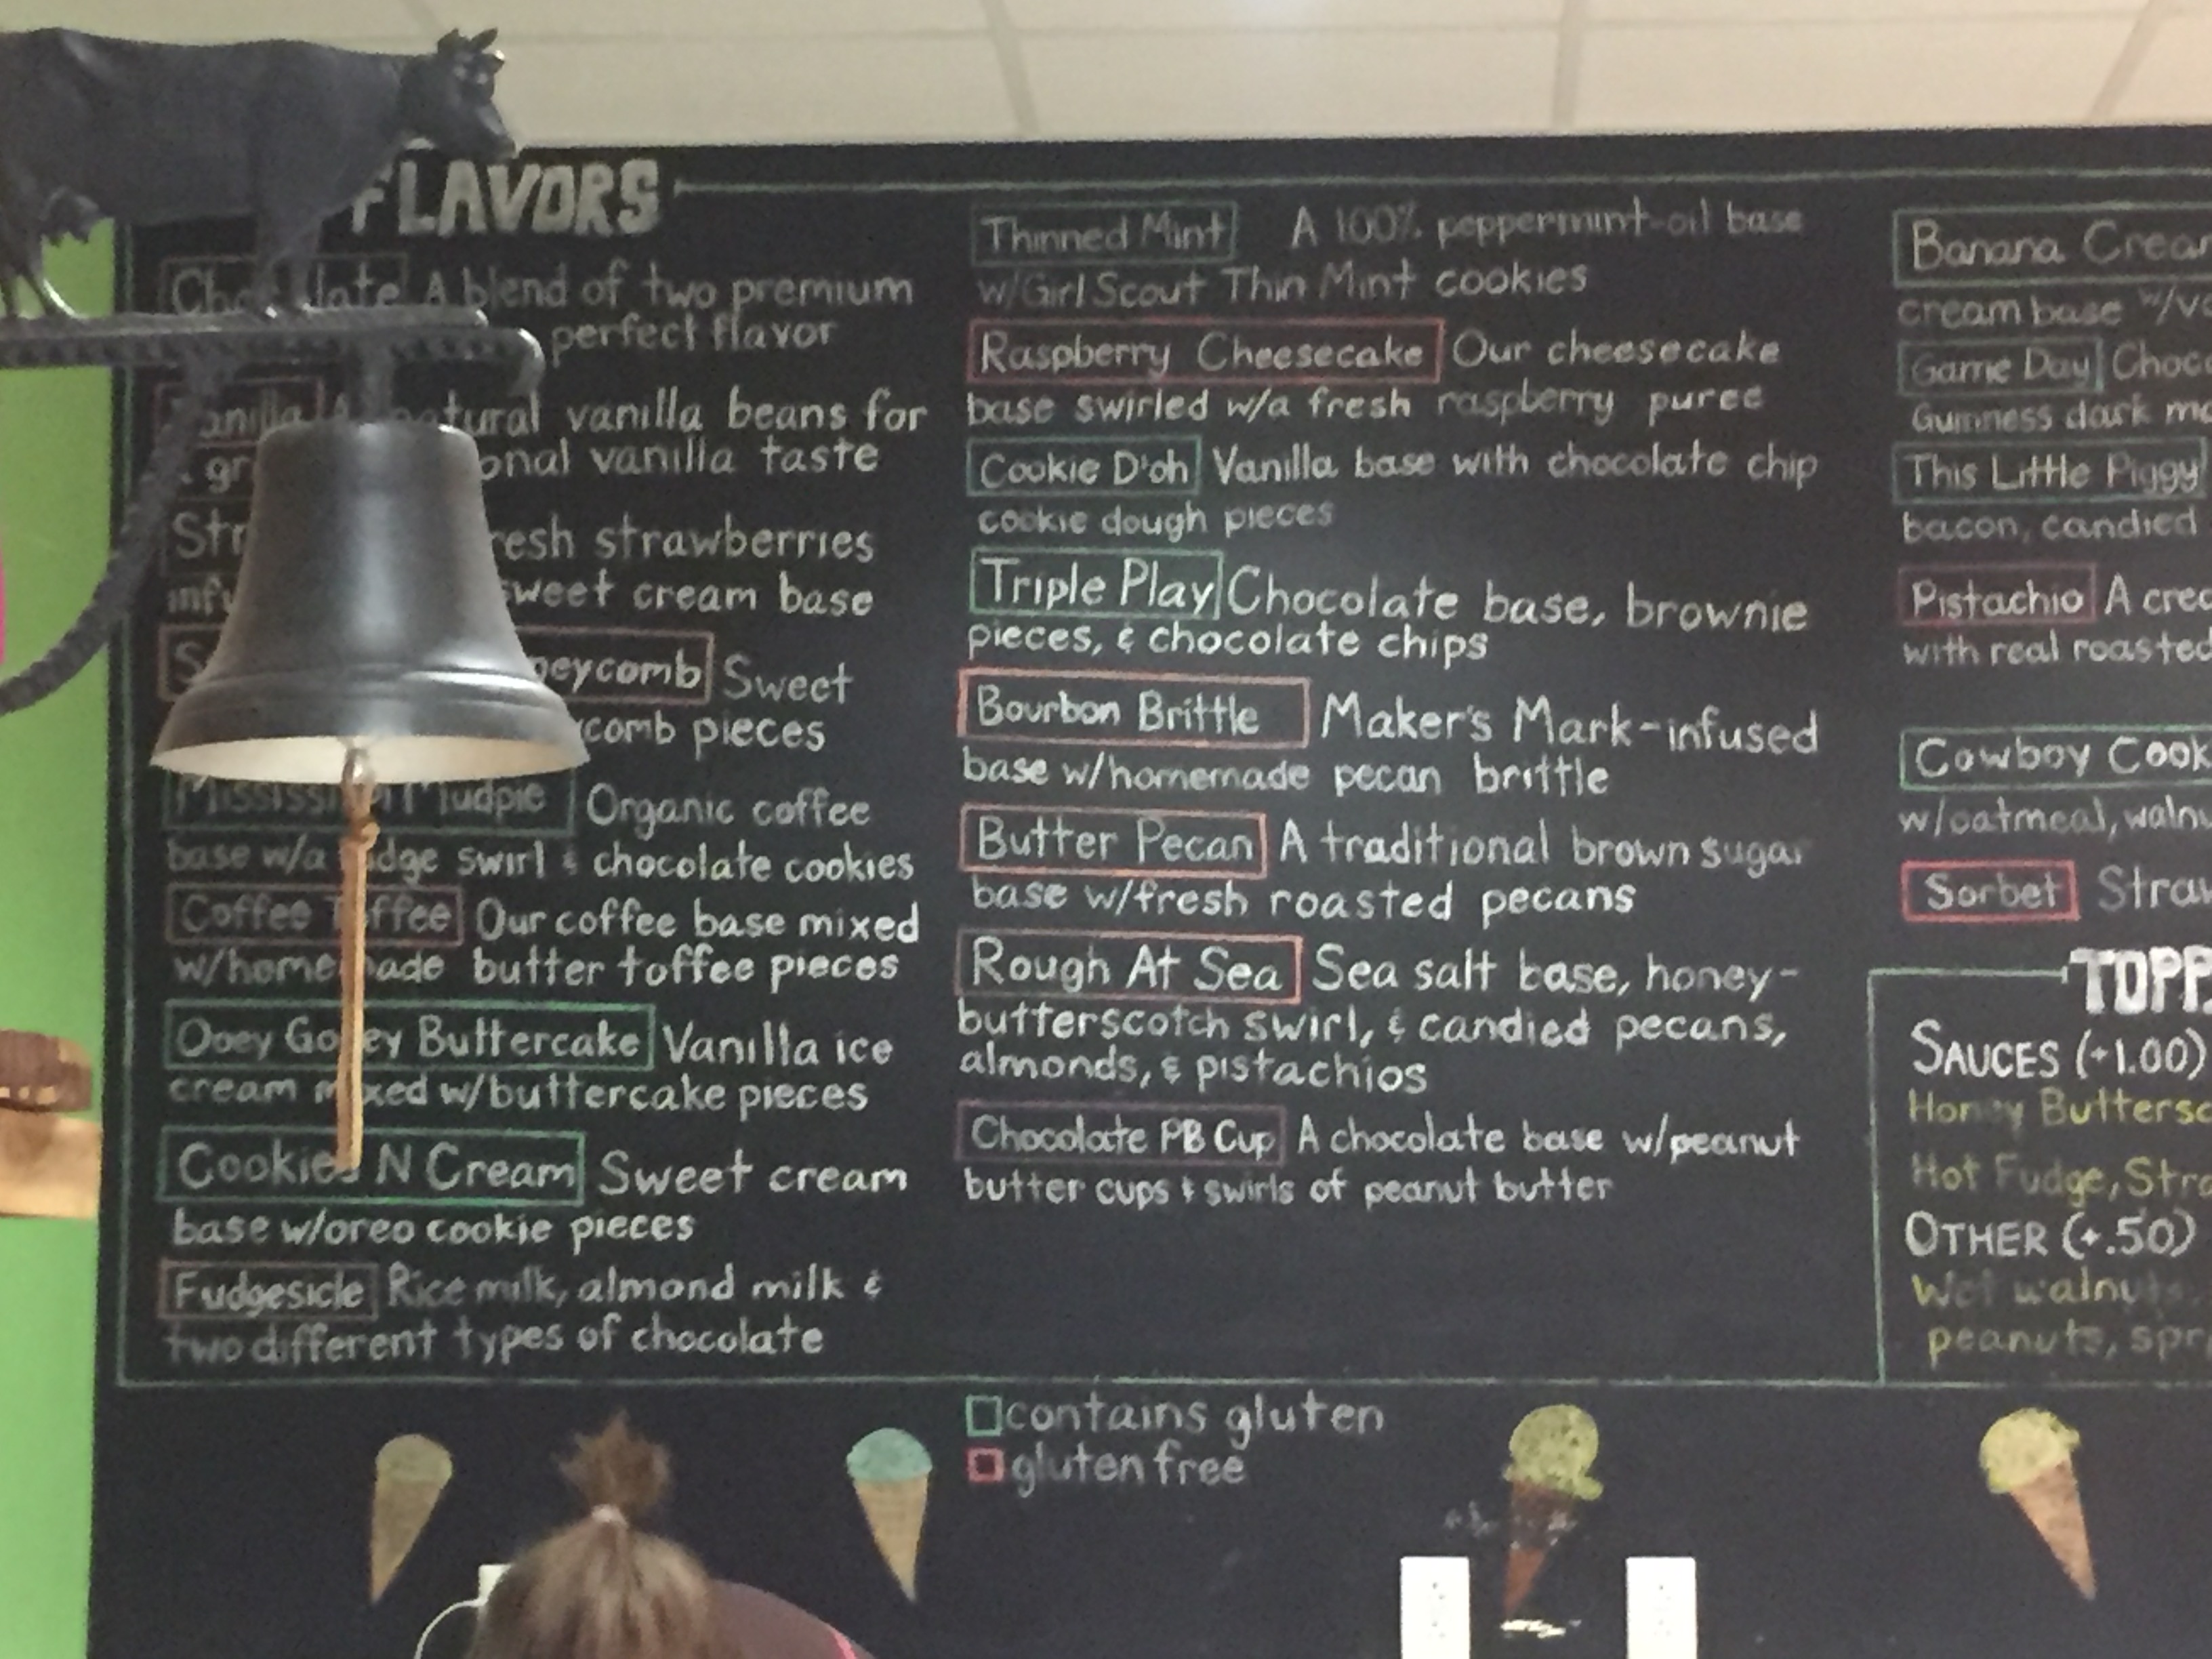 FLAVORS
A blend of two premium
perfect flavor
vanilla beans for
vanilla taste
strawberries
sweet cream base
Sweet
pieces
Mississippi Mudpie Organic coffee
base w/a fudge swirl & chocolate cookies
Coffee Toffee Our coffee base mixed
w/homemade butter toffee pieces
Ooey Gooey Buttercake Vanilla ice
cream mixed w/buttercake pieces
Cookies N Cream Sweet cream
base w/oreo cookie pieces
Fudgesicle Rice milk, almond milk &
two different types of chocolate
Thinned Mint A 100% peppermint-oil base
w/Girl Scout Thin Mint cookies
Raspberry Cheesecake Our cheesecake
base swirled w/a fresh raspberry puree
Cookie D'oh Vanilla base with chocolate chip
cookie dough pieces
Triple Play Chocolate base, brownie
pieces, & chocolate chips
Bourbon Brittle Maker's Mark-infused
base w/homemade pecan brittle
Butter Pecan A traditional brown sugar
base w/fresh roasted pecans
Rough At Sea Sea salt base, honey-
butterscotch swirl, & candied pecans,
almonds, & pistachios
Chocolate PB Cup A chocolate base w/peanut
butter cups & swirls of peanut butter
Banana
cream base
Game Day
Guinness dark
This Little Piggy
bacon, candied
Pistachio A
with real roasted
Cowboy
w/oatmeal,
Sorbet
SAUCES (+1.00)
Honey
Hot Fudge,
OTHER (+.50)
Wet walnuts,
peanuts,
contains gluten
gluten free